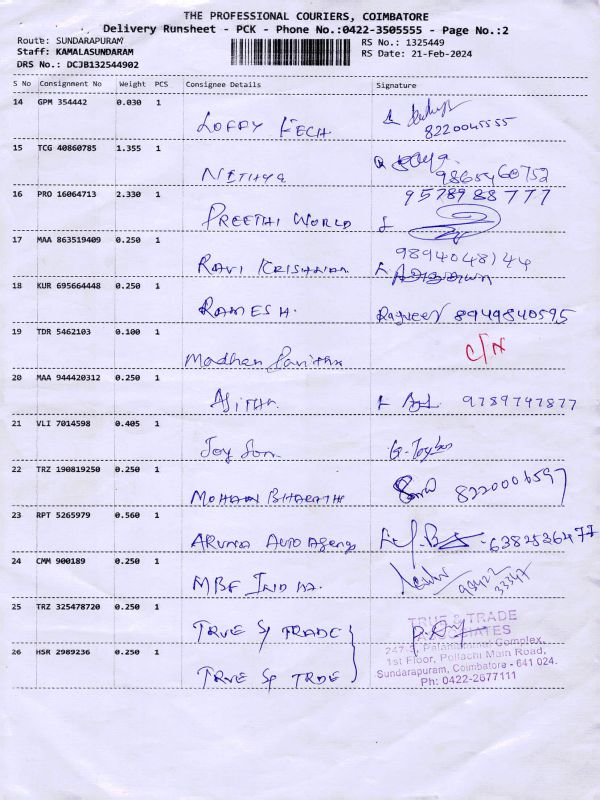 THE PROFESSIONAL COURIERS, COIMBATORE
Delivery Runsheet - PCK - Phone No.:0422-3505555 - Page No.:2
Route: SUNDARAPURAM
RS No.: 1325449
Staff: KAMALASUNDARAM
RS Date: 21-Feb-2024
DRS No.: DCJB132544902
S No Consignment No Weight PCS Consignee Details Signature
14 GPM 354442 0.030 1
8220045555
15 TCG 40860785 1.355 1
NITHYA 9865460752
16 PRO 16064713 2.330 1 9578988777
PREETHI WORLD
17 MAA 863519409 0.250 1 9894048144
RAVI KRISHNAN
18 KUR 695664448 0.250 1
RAMESH. 8949840595
19 TDR 5462103 0.100 1
Madhan C/N
20 MAA 944420312 0.250 1
AJITHA 9789797877
21 VLI 7014598 0.405 1
Joy Son
22 TRZ 190819250 0.250 1
MOHAN BHARATHI 8220006597
23 RPT 5265979 0.560 1
ARUNA AUTO Agency 6382536477
24 CMM 900189 0.250 1
MBF INDIA. 93422 33347
25 TRZ 325478720 0.250 1
TRUE Sp TRADE
TRUE & TRADE
26 HSR 2989236 0.250 1
TRUE Sp TRDE
1st Floor, Pollachi Main Road,
Sundarapuram, Coimbatore - 641 024.
Ph: 0422-2677111